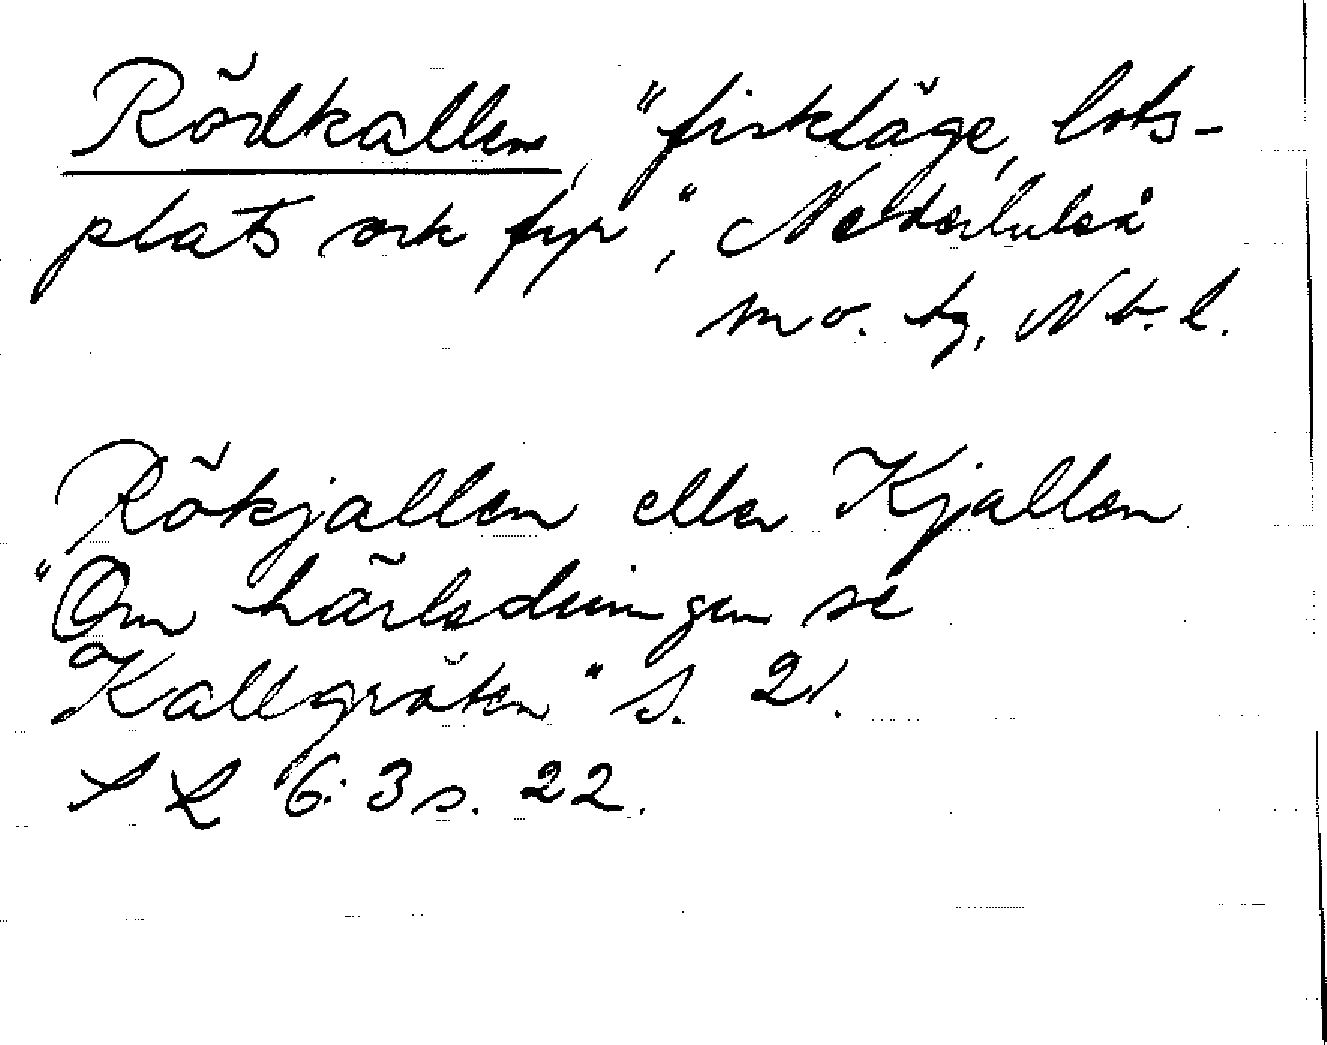 Rödkallen, "fiskläge, lots-
plats och fyr", Nederluleå
m o. tg, Nb. l.
Rökjallen eller Kjallen
"Om härledningen se
Kallgrötan" s. 21.
S L 6:3 s. 22.